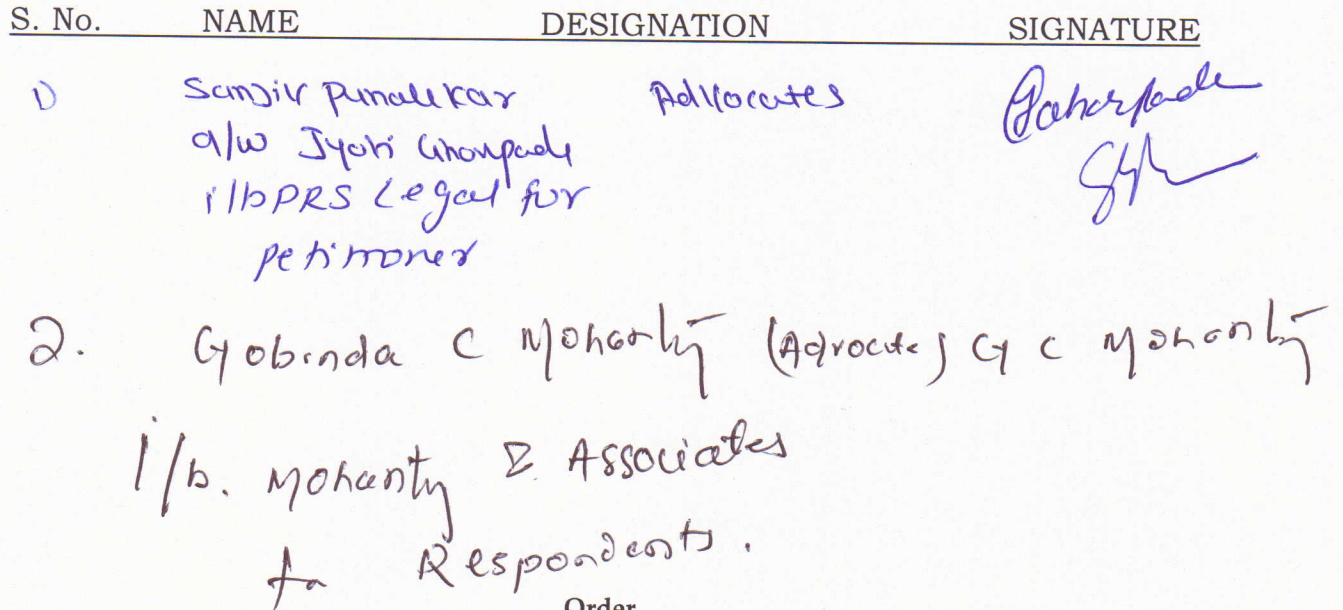 S. No. NAME DESIGNATION SIGNATURE
1) Sanjiv Punalekar Advocates
a/w Jyoti Ghorpade
i/b PRS Legal for
petitioner
2. Gobinda C Mohanty (Advocate) G C Mohanty
i/b. Mohanty & Associates
for Respondents.
Order